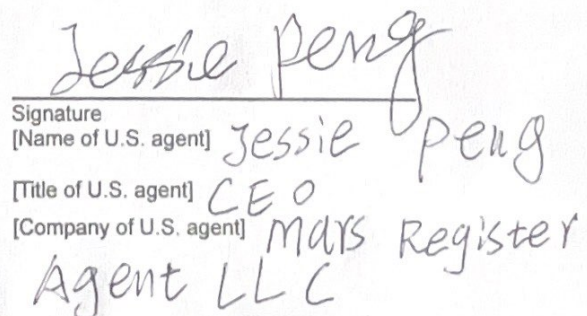 Jessie Peng
Signature
[Name of U.S. agent] Jessie Peng
[Title of U.S. agent] CEO
[Company of U.S. agent] Mars Register
Agent LLC